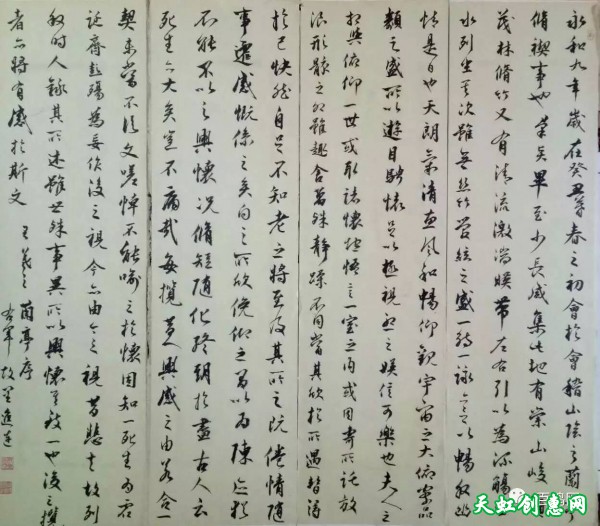 永和九年歲在癸丑暮春之初會於會稽山陰之蘭
脩禊事也羣賢畢至少長咸集此地有崇山峻
茂林脩竹又有清流激湍暎帶左右引以為流觴
水列坐其次雖無絲竹管絃之盛一觴一詠亦足以暢敘幽
情是日也天朗氣清惠風和暢仰觀宇宙之大俯察品
類之盛所以遊目騁懷足以極視聽之娛信可樂也夫人之
相與俯仰一世或取諸懷抱悟言一室之內或因寄所託放
浪形骸之外雖趣舍萬殊靜躁不同當其欣於所遇暫得
於己快然自足不知老之將至及其所之既倦情隨
事遷感慨係之矣向之所欣俛仰之間以為陳跡猶
不能不以之興懷況脩短隨化終期於盡古人云
死生亦大矣豈不痛哉每攬昔人興感之由若合一
契未嘗不臨文嗟悼不能喻之於懷固知一死生為虛
誕齊彭殤為妄作後之視今亦由今之視昔悲夫故列
敘時人錄其所述雖世殊事異所以興懷其致一也後之攬
者亦將有感於斯文 王羲之蘭亭序
右軍故里進
天虹创意网